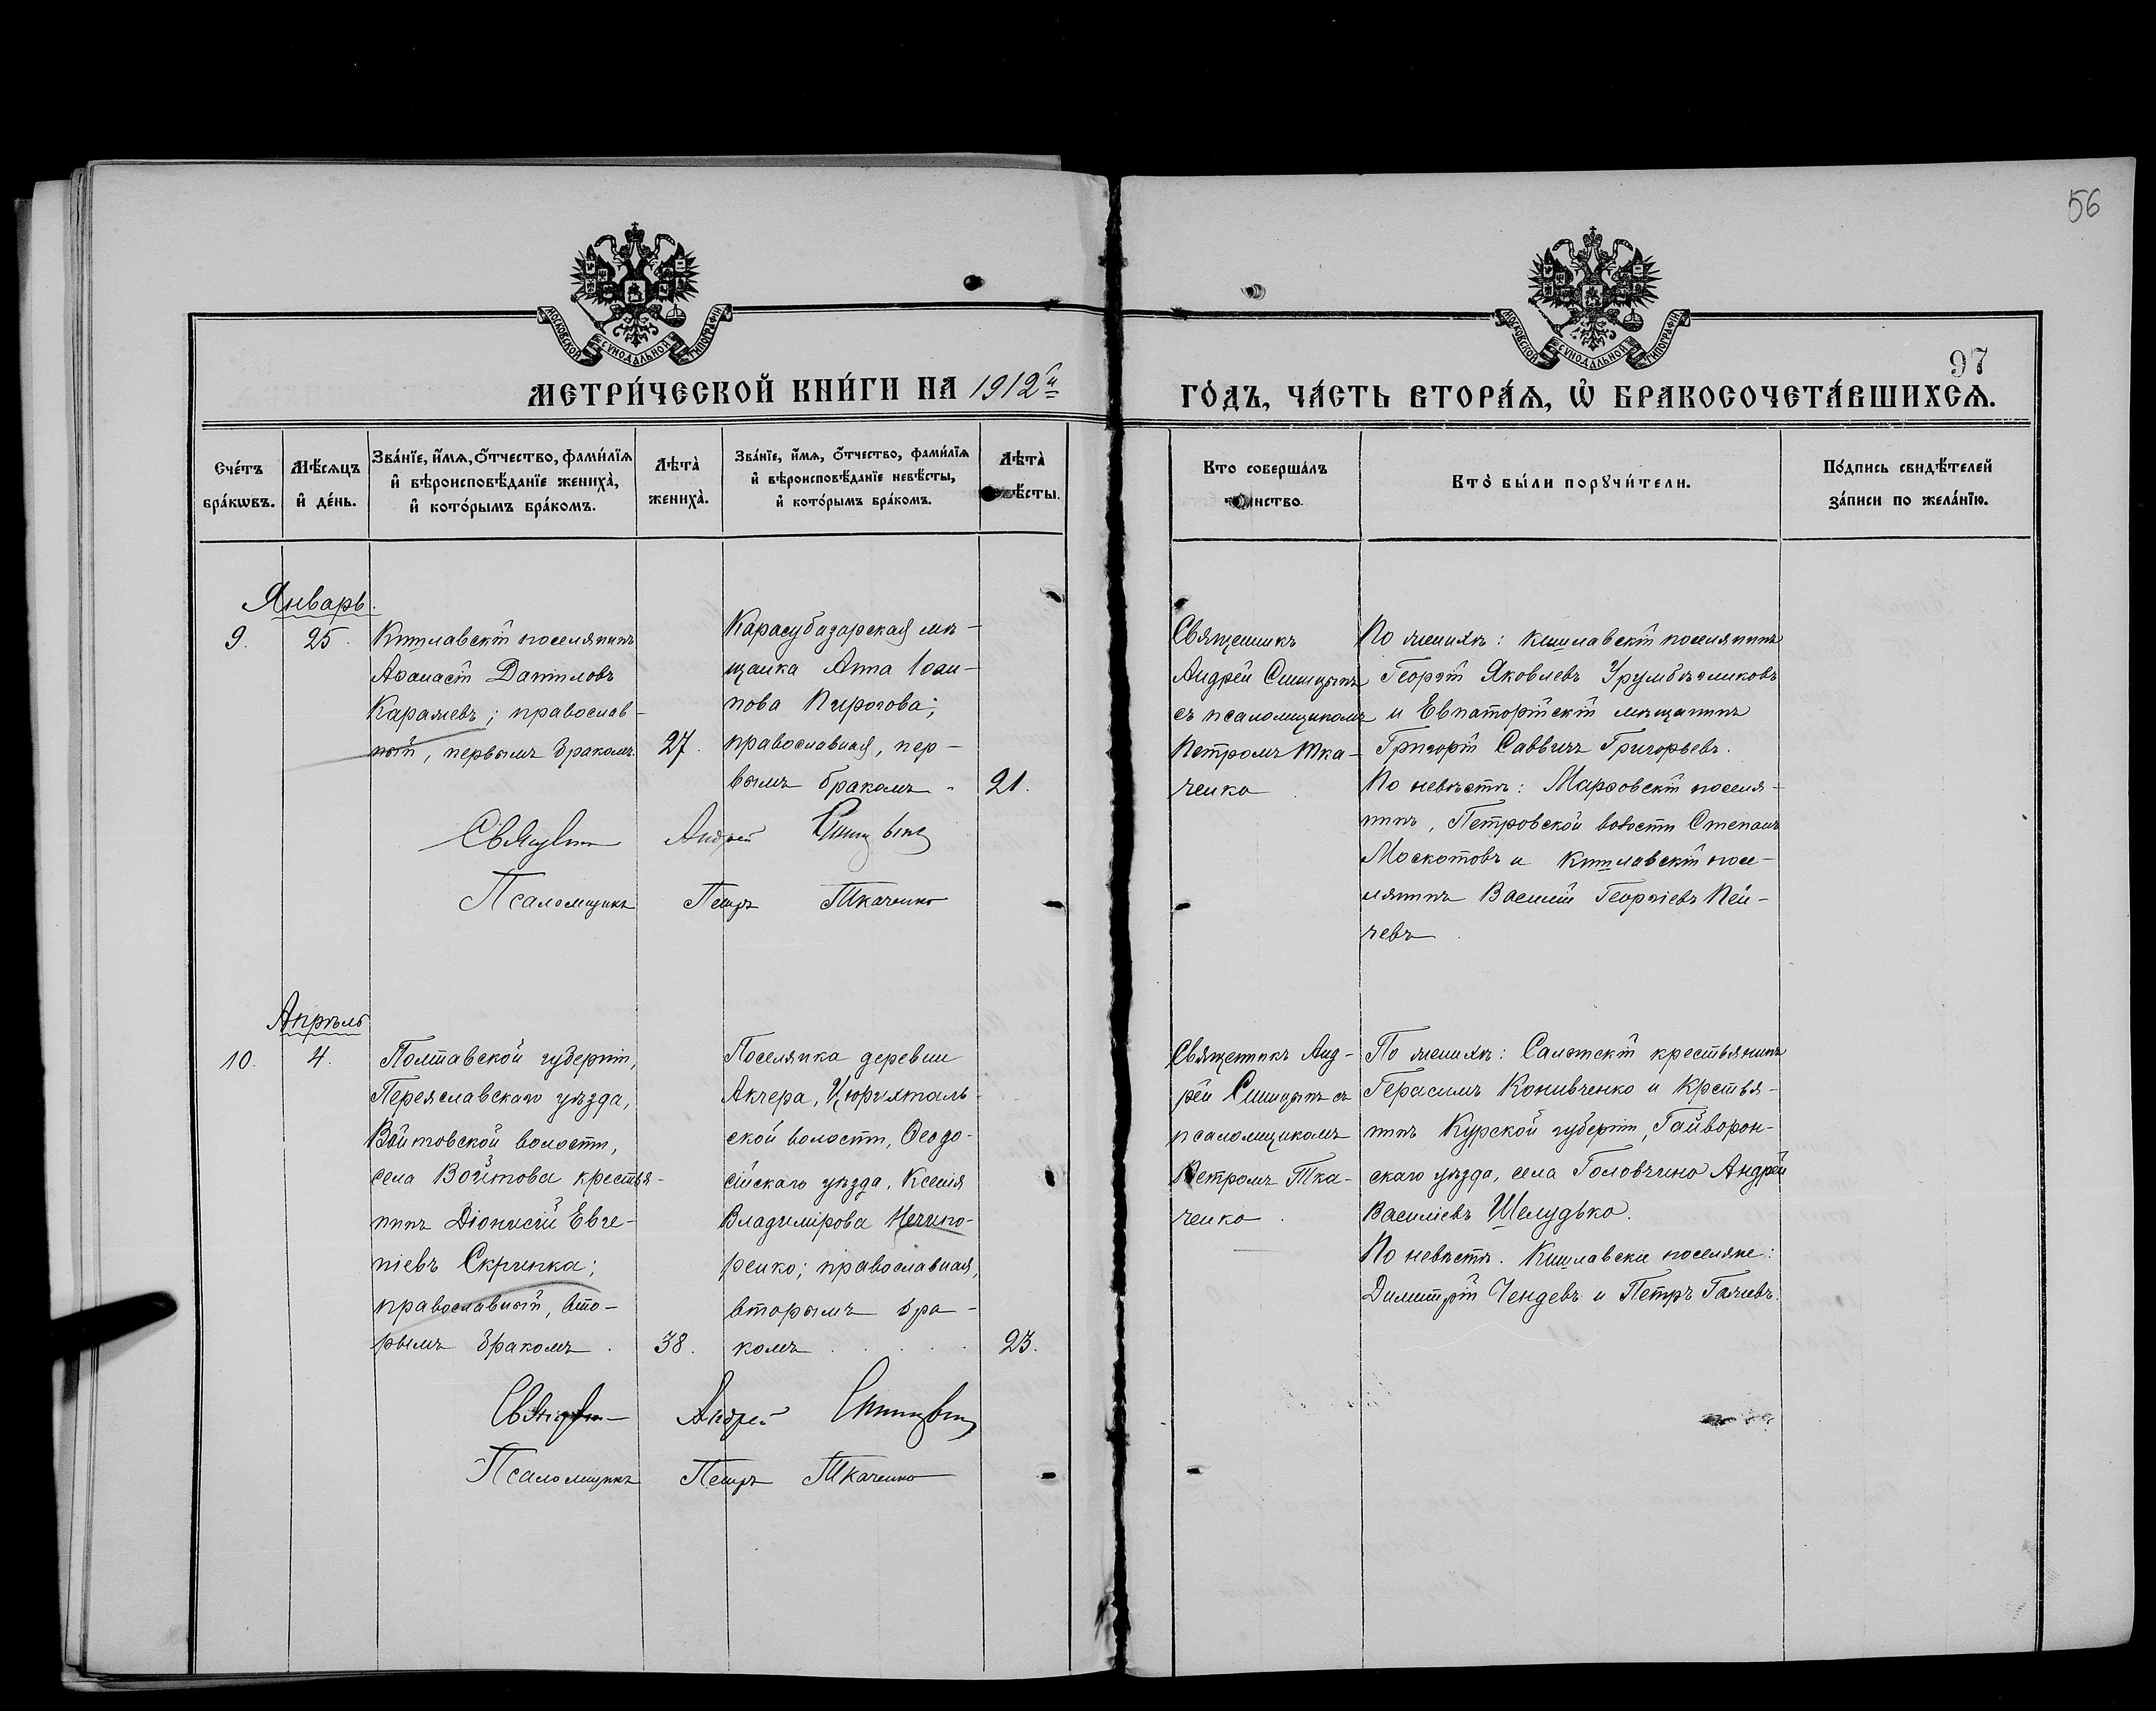 56
МОСКОВСКОЙ СѴНОДАЛЬНОЙ ТИПОГРАФІИ
МОСКОВСКОЙ СѴНОДАЛЬНОЙ ТИПОГРАФІИ
97
МЕТРИ́ЧЕСКОЙ КНИ́ГИ НА 1912й
ГО́ДЪ, ЧА́СТЬ ВТОРА́Ѧ, Ѡ҆ БРАКОСОЧЕТА́ВШИХСѦ.
Сче́тъ
бра́кѡвъ.
Мѣ́сѧцъ
и҆ де́нь.
Зва́нїе, и҆́мѧ, ѻ҆́тчество, фами́лїѧ
и҆ вѣроисповѣ́данїе жениха̀,
и҆ кото́рымъ бра́комъ.
Лѣта̀
жениха̀.
Зва́нїе, и҆́мѧ, ѻ҆́тчество, фами́лїѧ
и҆ вѣроисповѣ́данїе невѣ́сты,
и҆ кото́рымъ бра́комъ.
Лѣта̀
вѣ́сты.
Кто совершáлъ
инство.
Кто̀ бы́ли порꙋчи́тели.
По́дпись свидѣ́телей
за́писи по жела́нїю.
Январь.
9.
25.
Кишлавскій поселянинъ
Аѳанасій Даніиловъ
Каражевъ; православ-
ный, первымъ бракомъ.
27.
Карасубазарская мѣ-
щанка Анна Іоан-
нова Пирогова;
православная, пер-
вымъ бракомъ.
21.
Священникъ
Андрей Синицынъ
съ псаломщикомъ
Петромъ Тка-
ченко.
По женихѣ: Кишлавскій поселянинъ
Георгій Яковлевъ
и Евпаторійскій мѣщанинъ
Григорій Саввичъ Григорьевъ.
По невѣстѣ: Марѳовскій поселя-
нинъ, Петровской волости Степанъ
Москотовъ и Кишлавскій посе-
лянинъ Василій Георгіевъ Пей-
чевъ.
Андрей Синицынъ
Псаломщикъ Петръ Ткаченко
Апрѣль
10.
4.
Полтавской губерніи,
Переяславскаго уѣзда,
Войтовской волости,
села Войтова крестья-
нинъ Діонисій Евге-
ніевъ Скрипка;
православный, вто-
рымъ бракомъ.
38.
Поселянка деревни
Акчера, Цюрихталь-
ской волости, Ѳеодо-
сійскаго уѣзда, Ксенія
Владимірова Нечипо-
ренко; православная,
вторымъ бра-
комъ
23.
Священникъ Анд-
рей Синицынъ съ
псаломщикомъ
Петромъ Тка-
ченко.
По женихѣ: крестьянинъ
Герасимъ Конивченко и Крестья-
нинъ Курской губерніи, Гайворон-
скаго уѣзда, села Головчино Андрей
Василіевъ Шелудько.
По невѣстѣ. Кишлавски поселяне:
Димитрій Чендевъ и Петръ Гаячевъ.
Андрей Синицынъ
Псаломщикъ Петръ Ткаченко